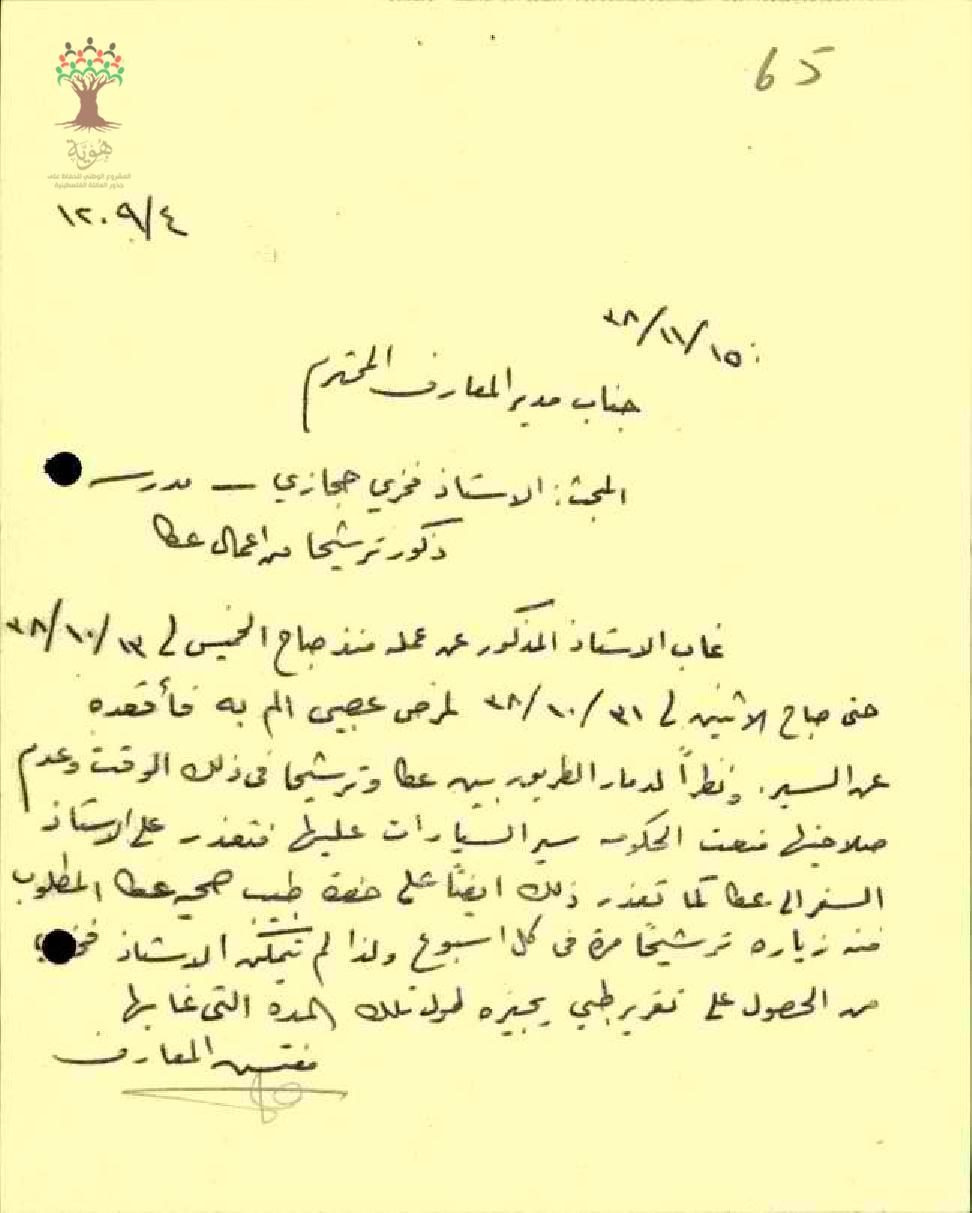 65
هُوِيَّة
المشروع الوطني للحفاظ على
جذور العائلة الفلسطينية
١٢٠٩/٤
٣٨/١١/١٥
جناب مدير المعارف المحترم
المبحث: الاستاذ فخري حجازي — مدرسة
ذكور ترشيحا من اعمال عكا
غاب الاستاذ المذكور عن عمله منذ صباح الخميس في ٣٨/١٠/١٣
حتى صباح الاثنين في ٣٨/١٠/٣١ لمرض عصبي الم به فأقعده
عن السير. ونظراً لدمار الطريق بين عكا وترشيحا في ذلك الوقت وعدم
صلاحيتها منعت الحكومة سير السيارات عليها فتعذر على الاستاذ
السفر الى عكا كما تعذر ذلك ايضاً على حضرة طبيب صحية عكا المطلوب
منه زيارة ترشيحا مرة في كل اسبوع ولذا لم يتمكن الاستاذ فخري
من الحصول على تقرير طبي يجيزه طول تلك المدة التي غابها
مفتش المعارف